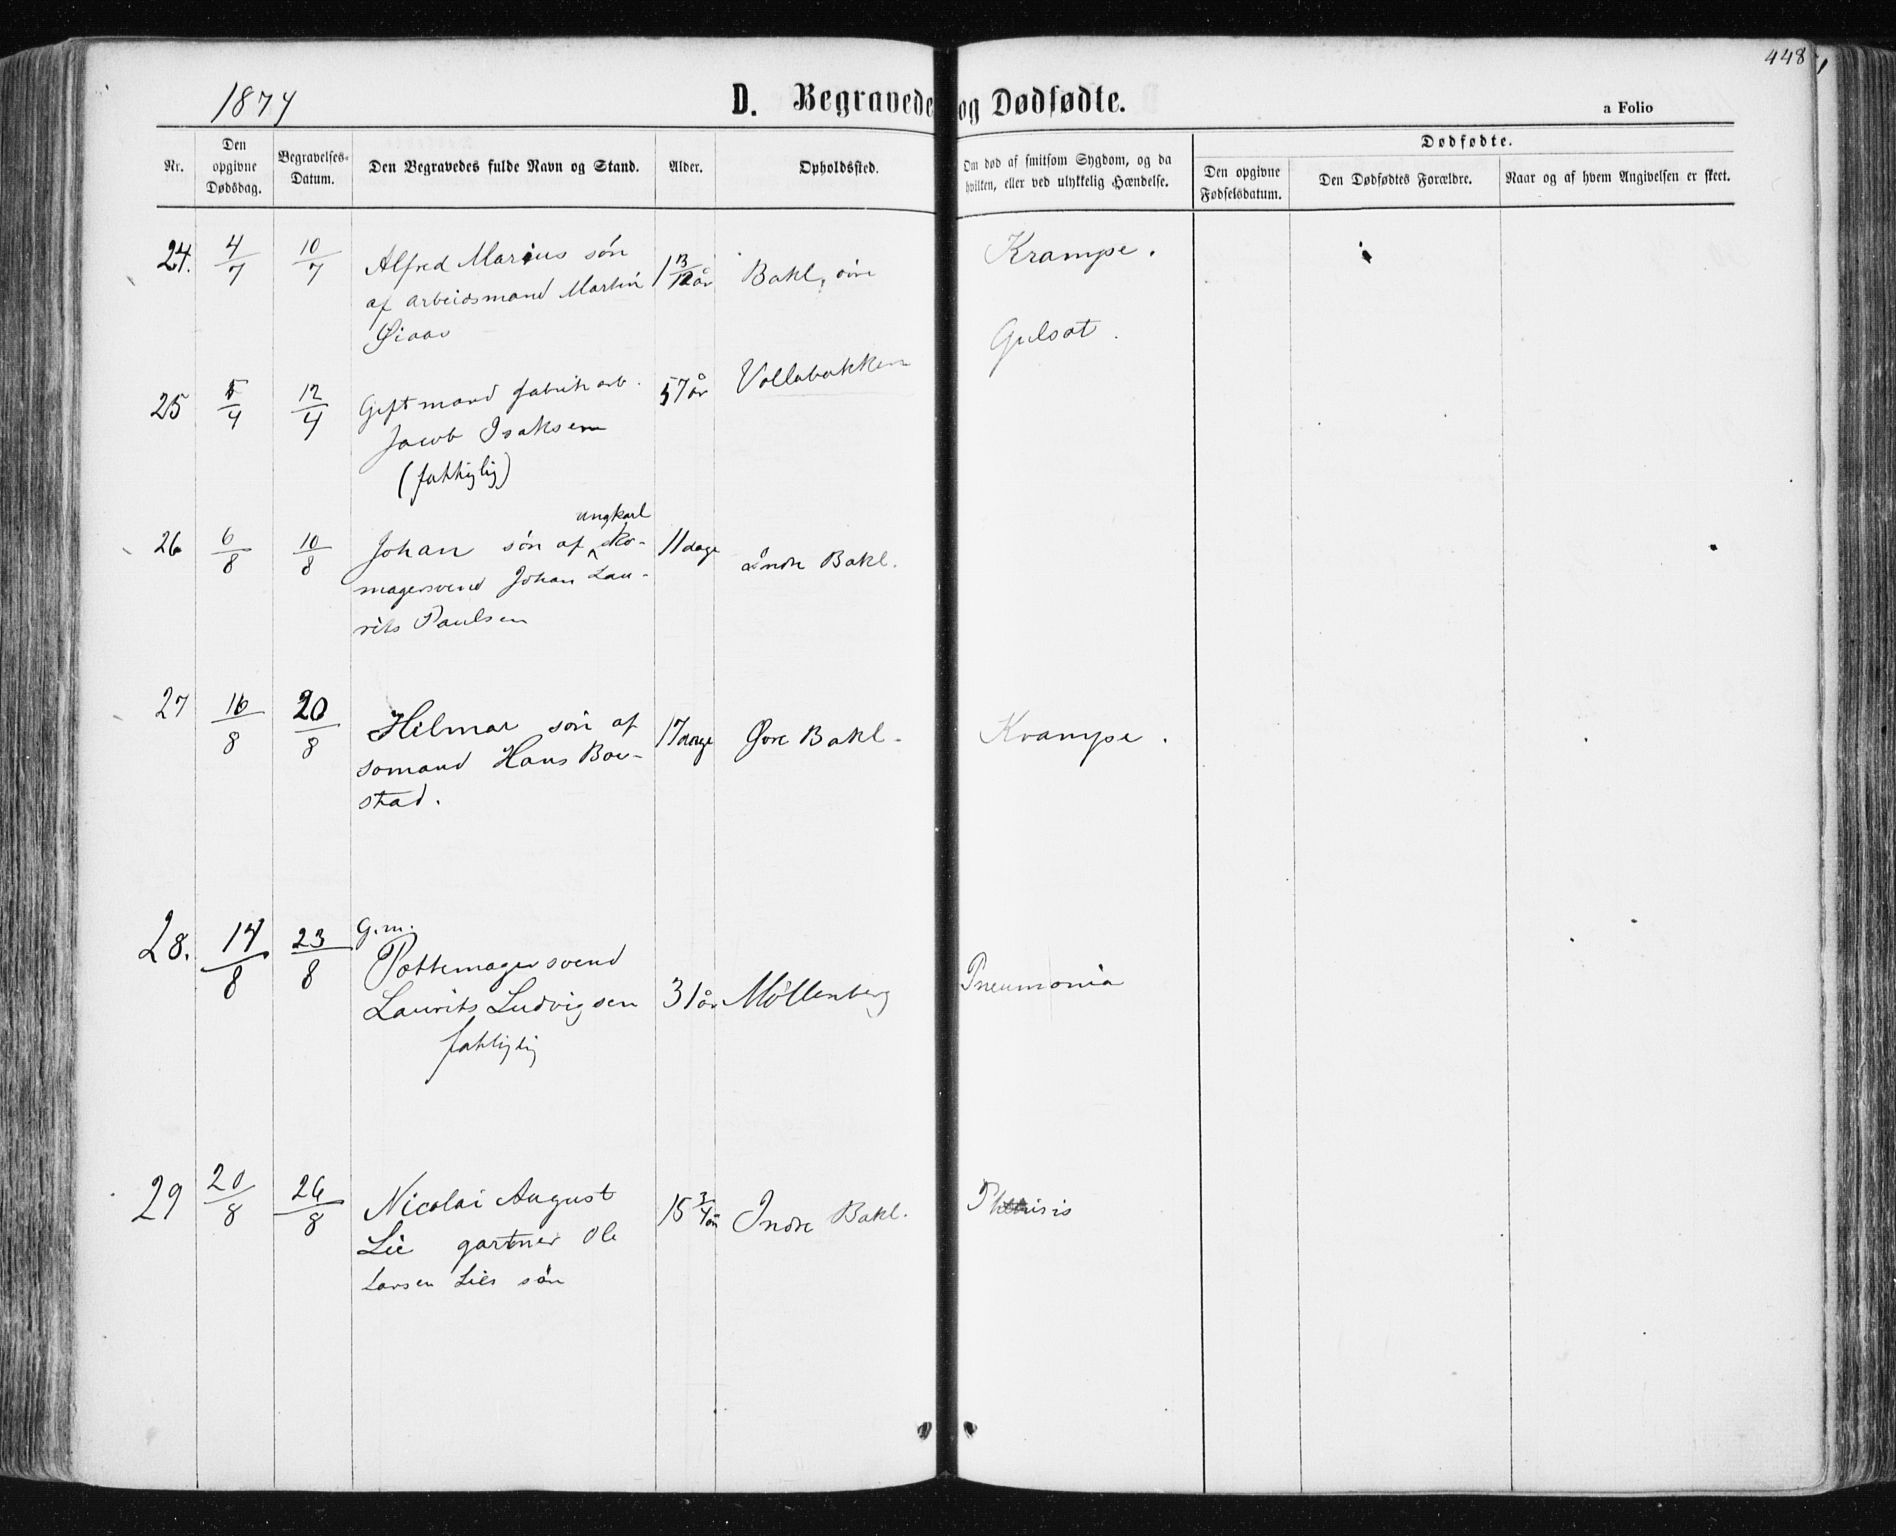 448
1874
D. Begravede og Dødfødte.
a Folio
Nr.
Den opgivne Dødsdag.
Begravelses-Datum.
Den Begravedes fulde Navn og Stand.
Alder.
Opholdssted.
Om død af smitsom Sygdom, og da hvilken, eller ved ulykkelig Hændelse.
Dødfødte.
Den opgivne Fødselsdatum.
Den Dødfødtes Forældre.
Naar og af hvem Angivelsen er skeet.
24. 4/7 10/7 Alfred Marius søn 1 år Bakl, øvre Krampe.
af arbeidsmand Martin
25 5/4 12/4 Gift mand fabrik arb. 57 år Vollabakken Gulsot.
Jacob Isaksen
(fattiglig)
26 6/8 10/8 Johan søn af ungkarl sko- 11 dage Indre Bakl.
magersvend Johan Lau-
rits Paulsen
27 16/8 20/8 Hilmar søn af 17 dage Øvre Bakl. Krampe.
sømand Hans Boe-
stad.
28. 14/8 23/8 G.m.
Pottemagersvend
Laurits Ludvigsen 31 år Møllenberg Pneumonia
fattiglig
29 20/8 26/8 Nicolai August 15 3/4 år Indre Bakl. Phthisis
Lie gartner Ole
Larsen Lies søn